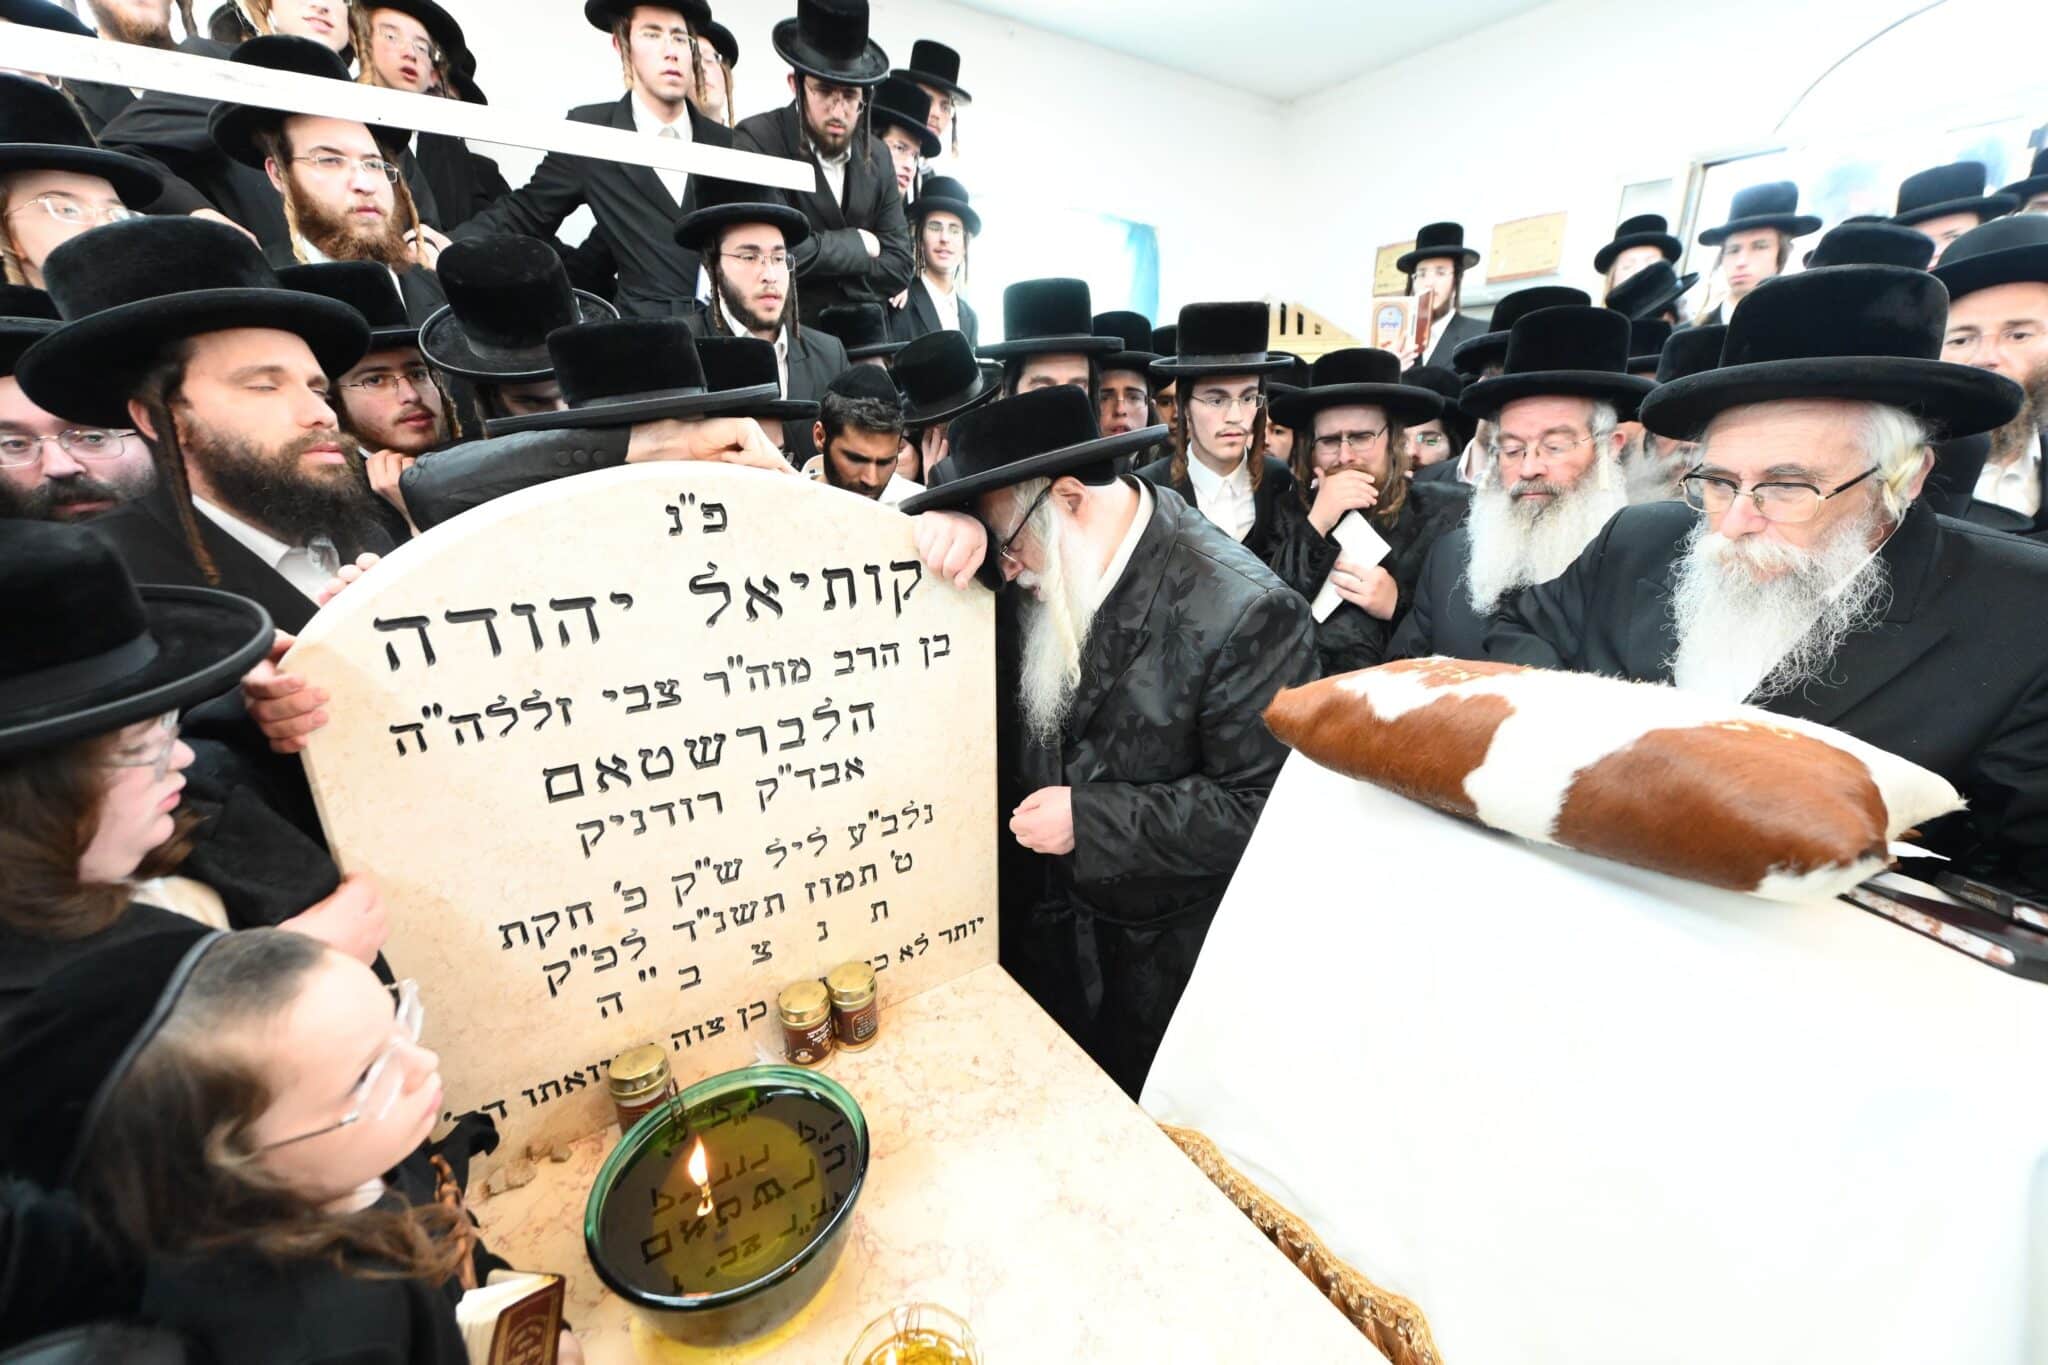 פ"נ
קותיאל יהודה
בן הרב מוה"ר צבי זללה"ה
הלברשטאם
אבד"ק רודניק
נלב"ע ליל ש"ק פ' חקת
ט' תמוז תשנ"ד לפ"ק
ת נ צ ב "ה
יותר לא
כן צוה